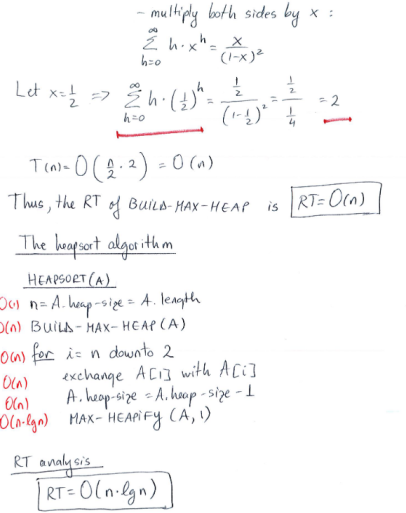 - multiply both sides by x :
∞ Σ h=0 h·x^h = x/(1-x)^2
Let x=1/2 => ∞ Σ h=0 h·(1/2)^h = (1/2)/(1-1/2)^2 = (1/2)/(1/4) = 2
T(n)= O(n/2 · 2) = O(n)
Thus, the RT of BUILD-MAX-HEAP is RT= O(n)
The heapsort algorithm
HEAPSORT(A)
O(1) n= A.heap-size = A.length
O(n) BUILD-MAX-HEAP(A)
O(n) for i= n downto 2
O(n) exchange A[1] with A[i]
O(n) A.heap-size = A.heap-size -1
O(n·lgn) MAX-HEAPIFY (A,1)
RT analysis
RT= O(n·lgn)